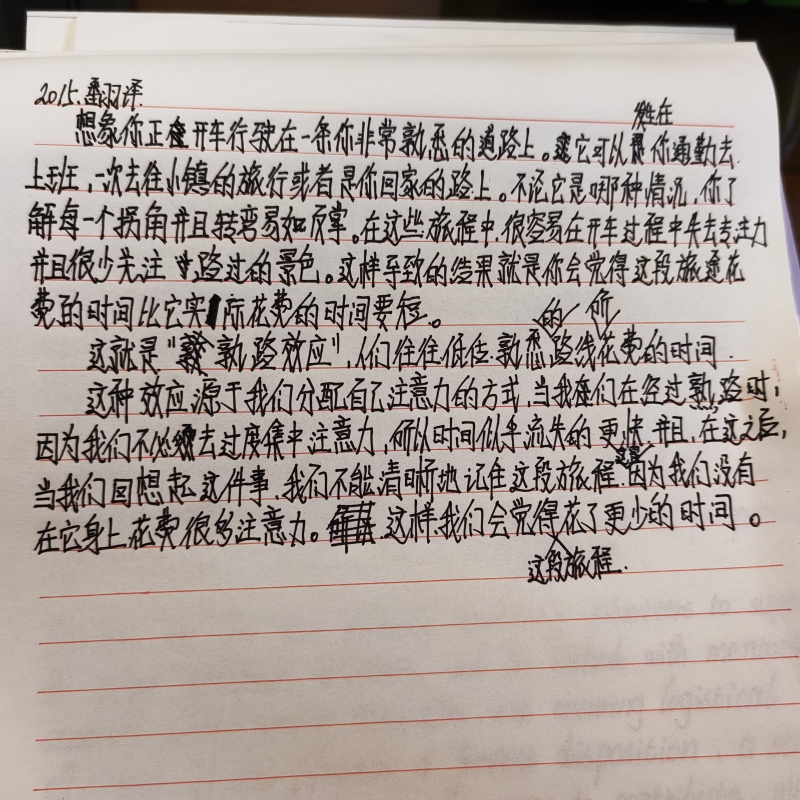 2015.翻译
发生在
想象你正在开车行驶在一条你非常熟悉的道路上。它可以是你通勤去
上班,一次去往小镇的旅行或者是你回家的路上。不论它是哪种情况,你了
解每一个拐角并且转弯易如反掌。在这些旅程中,很容易在开车过程中失去专注力
并且很少关注路过的景色。这样导致的结果就是你会觉得这段旅途花
费的时间比它实际花费的时间要短。
的 所
这就是"熟路效应",人们往往低估熟悉路线花费的时间.
这种效应源于我们分配自己注意力的方式,当我们在经过熟路时,
因为我们不必去过度集中注意力,所以时间似乎流失的更快并且,在这之后,
这是
当我们回想起这件事,我们不能清晰地记住这段旅程.因为我们没有
在它身上花费很多注意力。这样,我们会觉得花了更少的时间。
这段旅程.